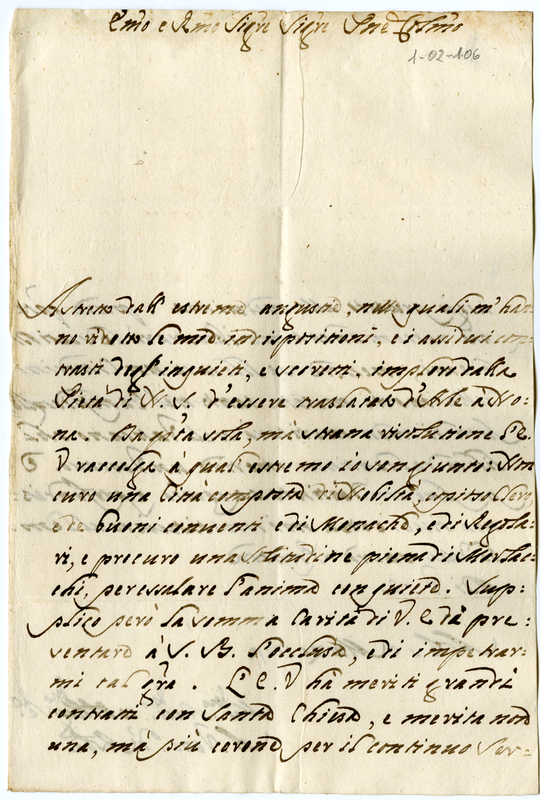 Em̃o e Rm̃o Sigre Sigre Pne Colmo
1-02-106
Astretto dall' estreme angustie, nelle quali m' han-
no ridotto le mie indispositioni, e i assidui con-
trasti degl' inquieti, e scorretti, imploro dalla
Pietà di N. S. d' essere traslatato d' Arbe à No:
na. Da q̃ta sola, mà strana risolutione l' E.
V raccolga à qual estremo io son giunto: Non
curo una Città composta di Nobiltà, copioso Clero
e de buoni conventi e di Monache, e di Regola:
ri, e procuro una solitudine piena di Morlac-
chi, per esalare l' anima con quiete. Sup:
plico però la somma Carità di V. E. dà pre:
sentare à S. B. l' occluse, e di impetrar-
mi tal gr̃a. L' E. V hà meriti grandi
contratti con Santa Chiesa, e merita non
una, mà più corone per il continuo ser-